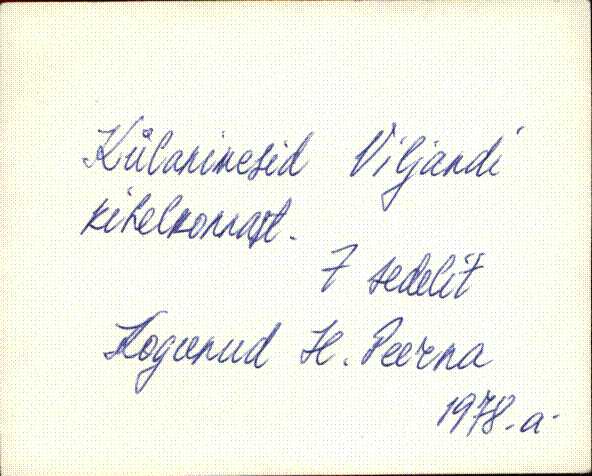 Külanimesid Viljandi
kihelkonnast.
7 sedelit
Kogunud H. Peerna
1978. a.